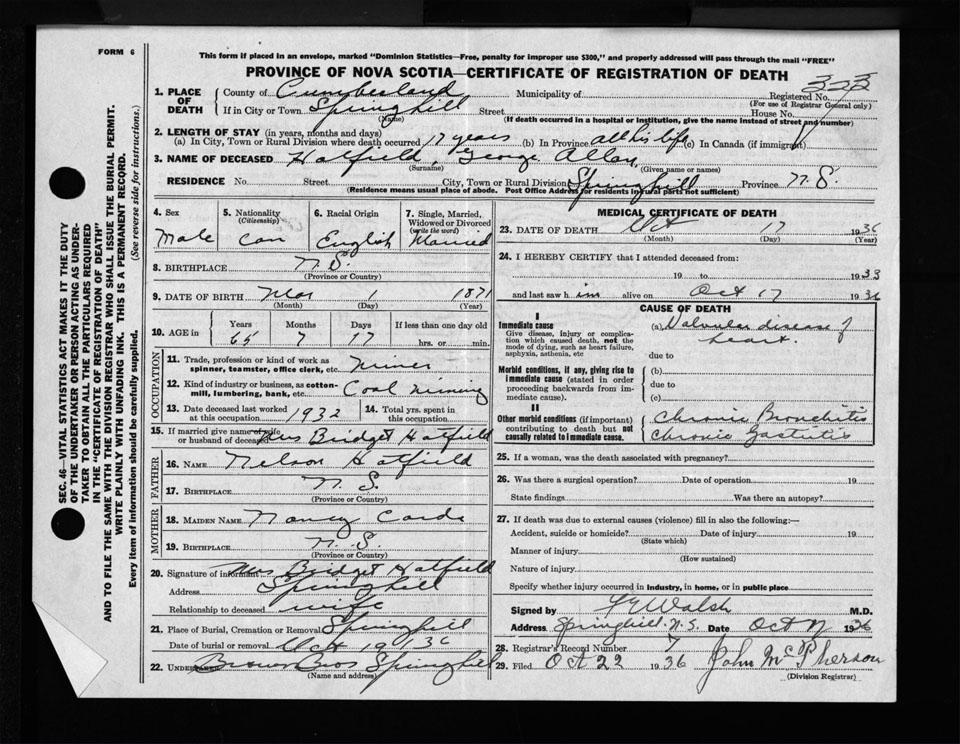 FORM 6
This form if placed in an envelope, marked "Dominion Statistics—Free, penalty for improper use $300," and properly addressed will pass through the mail "FREE"
PROVINCE OF NOVA SCOTIA—CERTIFICATE OF REGISTRATION OF DEATH
323
1. PLACE OF DEATH
County of Cumberland Municipality of Registered No.
(For use of Registrar General only)
If in City or Town Springhill Street House No.
(Name) (If death occurred in a hospital or institution, give the name instead of street and number)
2. LENGTH OF STAY (in years, months and days)
(a) In City, Town or Rural Division where death occurred 17 years (b) In Province all his life (c) In Canada (if immigrant)
3. NAME OF DECEASED Hatfield, George Allan
(Surname) (Given name or names)
RESIDENCE No. Street City, Town or Rural Division Springhill Province N.S.
(Residence means usual place of abode. Post Office Address for residents in rural parts not sufficient)
4. Sex
Male
5. Nationality
(Citizenship)
Can
6. Racial Origin
English
7. Single, Married, Widowed or Divorced
(write the word)
Married
8. BIRTHPLACE N.S.
(Province or Country)
9. DATE OF BIRTH Mar 1 1871
(Month) (Day) (Year)
10. AGE in
Years Months Days If less than one day old
65 7 17 hrs. or min.
OCCUPATION
11. Trade, profession or kind of work as spinner, teamster, office clerk, etc. Miner
12. Kind of industry or business, as cotton-mill, lumbering, bank, etc. Coal mining
13. Date deceased last worked at this occupation 1932
14. Total yrs. spent in this occupation
15. If married give name of wife or husband of deceased Mrs Bridget Hatfield
FATHER
16. NAME Nelson Hatfield
17. BIRTHPLACE N.S.
(Province or Country)
MOTHER
18. MAIDEN NAME Nancy Cards
19. BIRTHPLACE N.S.
(Province or Country)
20. Signature of informant Mrs Bridget Hatfield
Address Springhill
Relationship to deceased wife
21. Place of Burial, Cremation or Removal Springhill
Date of burial or removal Oct 19 1936
22. UNDERTAKER Brown Bros Springhill
(Name and address)
MEDICAL CERTIFICATE OF DEATH
23. DATE OF DEATH Oct 17 1936
(Month) (Day) (Year)
24. I HEREBY CERTIFY that I attended deceased from:
19 to 1933
and last saw him alive on Oct 17 1936
CAUSE OF DEATH
I
Immediate cause
Give disease, injury or complication which caused death, not the mode of dying, such as heart failure, asphyxia, asthenia, etc
(a) Valvular disease of heart.
due to
Morbid conditions, if any, giving rise to immediate cause (stated in order proceeding backwards from immediate cause).
(b)
due to
(c)
II
Other morbid conditions (if important) contributing to death but not causally related to immediate cause.
Chronic Bronchitis
Chronic Gastritis
25. If a woman, was the death associated with pregnancy?
26. Was there a surgical operation? Date of operation 19
State findings Was there an autopsy?
27. If death was due to external causes (violence) fill in also the following:—
Accident, suicide or homicide? Date of injury 19
(State which)
Manner of injury
(How sustained)
Nature of injury
Specify whether injury occurred in industry, in home, or in public place
Signed by Walsh M.D.
Address Springhill N.S. Date Oct 1936
28. Registrar's Record Number 7
29. Filed Oct 22 1936 John McPherson
(Division Registrar)
SEC. 46—VITAL STATISTICS ACT MAKES IT THE DUTY
OF THE UNDERTAKER OR PERSON ACTING AS UNDER-
TAKER TO OBTAIN ALL THE PARTICULARS REQUIRED
IN THE "CERTIFICATE OF REGISTRATION OF DEATH"
AND TO FILE THE SAME WITH THE DIVISION REGISTRAR WHO SHALL ISSUE THE BURIAL PERMIT.
WRITE PLAINLY WITH UNFADING INK. THIS IS A PERMANENT RECORD.
Every item of information should be carefully supplied. (See reverse side for instructions.)